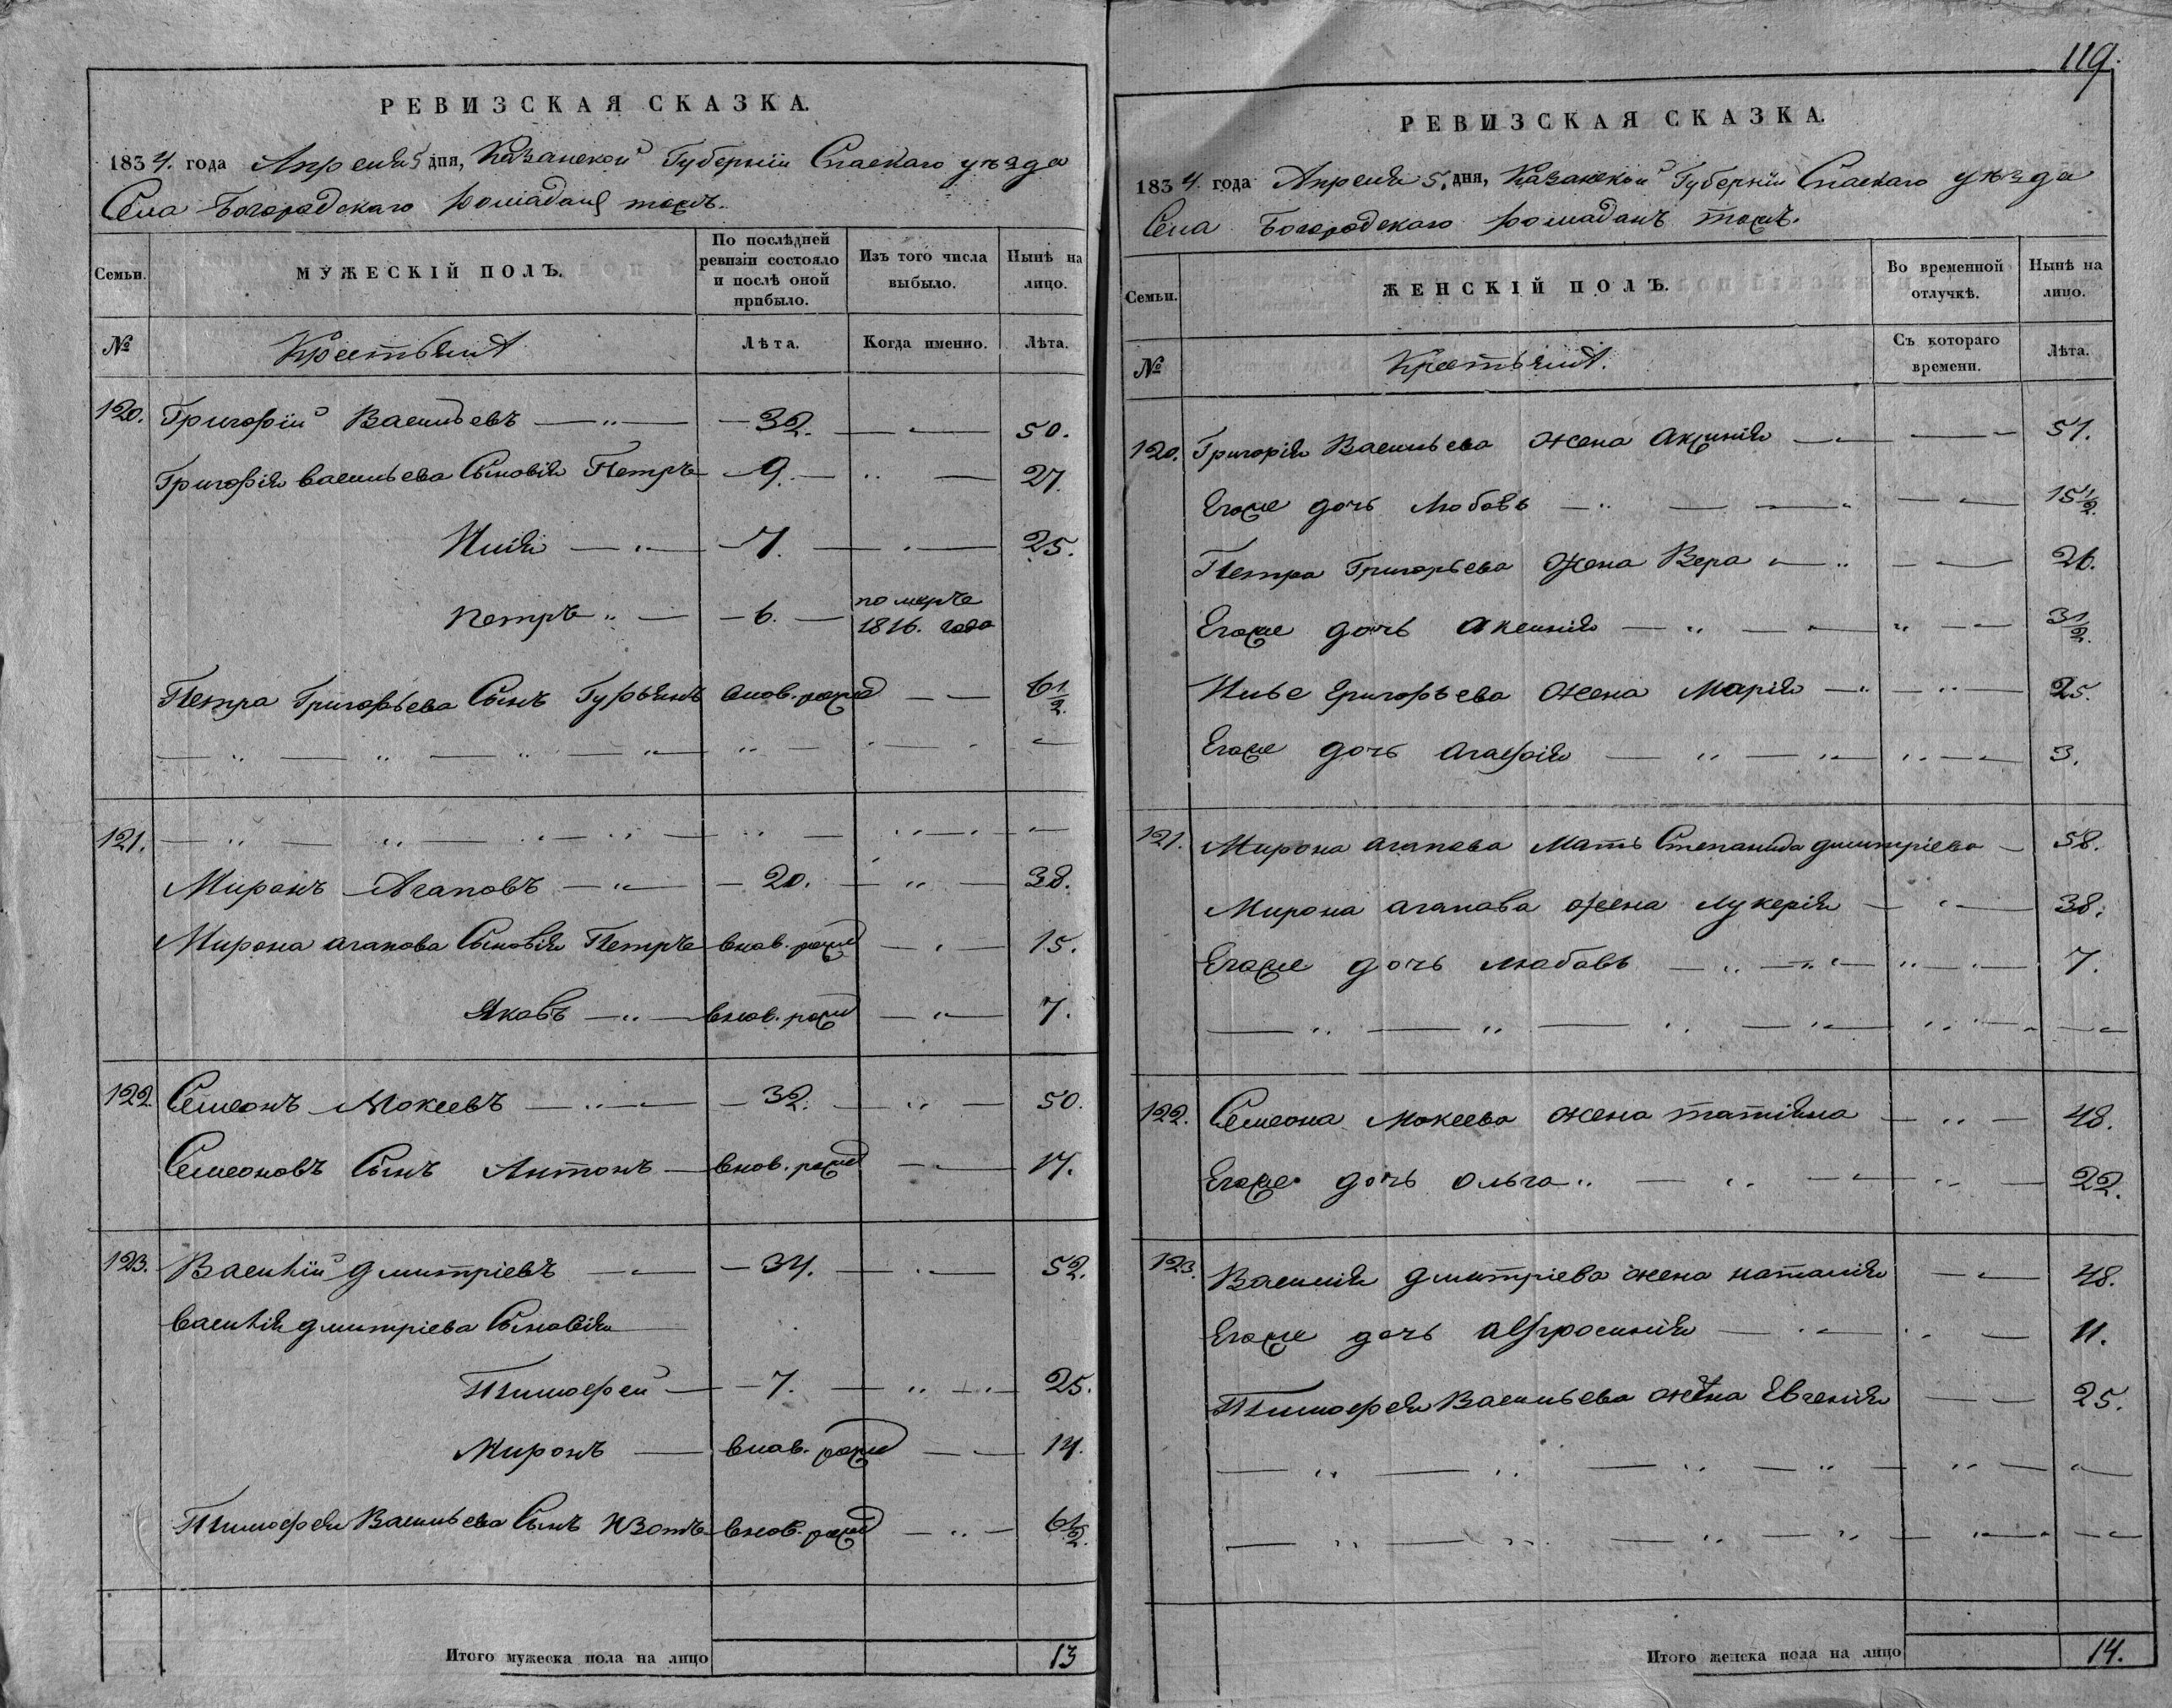 РЕВИЗСКАЯ СКАЗКА.
1834. года Апреля 5 дня, Казанской Губерніи Спаскаго уѣзда
Села Богородскаго Ромадань тожъ.
Семьи.
МУЖЕСКІЙ ПОЛЪ.
По послѣдней ревизіи состояло и послѣ оной прибыло.
Изъ того числа выбыло.
Нынѣ на лицо.
№
Крестьянѣ
Лѣта.
Когда именно.
Лѣта.
120. Григорій Васильевъ 32. 50.
Григорія васильева Сыновія Петръ 9. 27.
Илія 7. 25.
Петръ 6. померъ 1816. года
Петра Григорьева Сынъ Гурьянъ внов. рожд 6 1/2.
121.
Миронъ Агаповъ 20. 38.
Мирона агапова Сыновія Петръ внов. рожд 15.
Яковъ внов. рожд 7.
122. Семеонъ Мокеевъ 32. 50.
Семеоновъ Сынъ Антонъ внов. рожд 17.
123. Василій дмитріевъ 34. 52.
василія дмитріева Сыновія
Тимофей 7. 25.
Миронъ внов. рожд 14.
Тимофея Васильева Сынъ Изотъ внов. рожд 6 1/2.
Итого мужеска пола на лицо 13
119.
РЕВИЗСКАЯ СКАЗКА.
1834. года Апреля 5. дня, Казанской Губерніи Спаскаго уѣзда
Села Богородскаго Ромаданъ тожъ.
Семьи.
ЖЕНСКІЙ ПОЛЪ.
Во временной отлучкѣ.
Нынѣ на лицо.
№
Крестьянѣ.
Съ котораго времени.
Лѣта.
120. Григорія Васильева жена Аксинія 51.
Егоже дочь Любовь 15 1/2.
Петра Григорьева жена Вера 26.
Егоже дочь аксинія 3 1/2.
Илье Григорьева жена Марія 25.
Егоже дочь агафія 3.
121. Мирона агапова Мать Степанида дмитріева 58.
Мирона агапова жена лукерія 38.
Егоже дочь любовь 7.
122. Семеона Мокеева жена татіяна 48.
Егоже дочь ольга 22.
123. Василія дмитріева жена наталія 48.
Егоже дочь афросинія 11.
Тимофея Васильева жена Евгенія 25.
Итого женска пола на лицо 14.